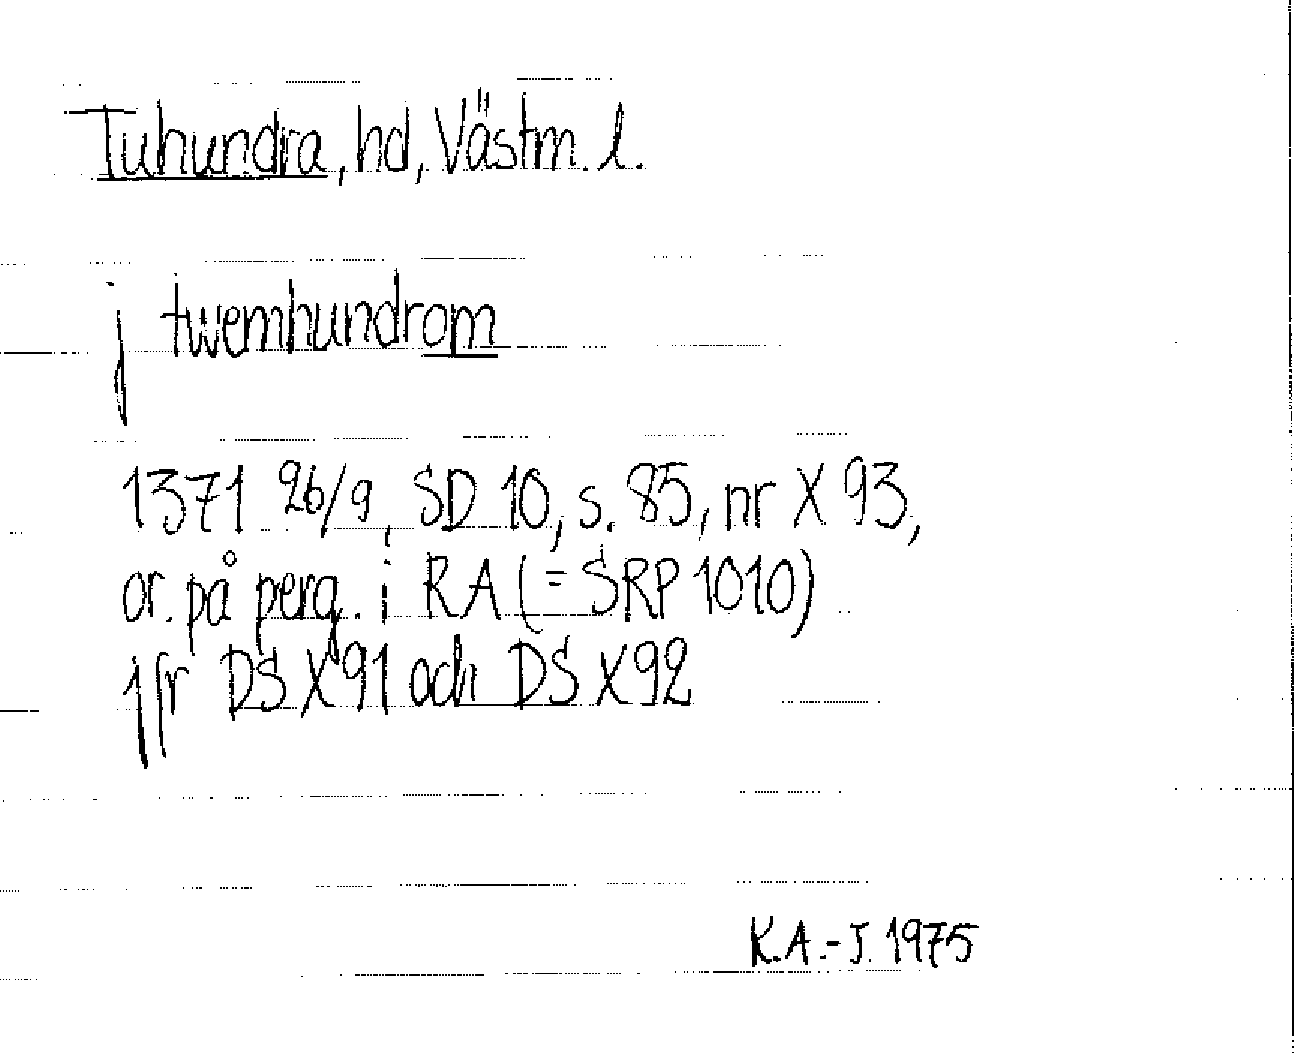 Tuhundra, hd, Västm. l.
j twemhundrom
1371 26/9, SD 10, s. 85, nr X 93,
or. på perg. i RA (= SRP 1010)
jfr DS X 91 och DS X 92
K.A.-J. 1975